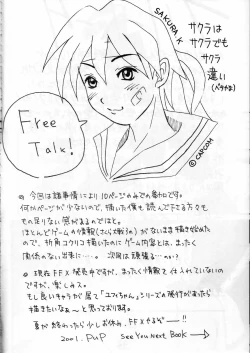 SAKURA K
サクラは
サクラでも
サクラ
違い
Free
Talk!
© CAPCOM
◎ 今回は諸事情により10ページのみでの参加です。
何かページが少ないので、描いた僕も読んで下さる方々も
もの足りない感があるのでほと。
ほとんどゲームの情報(さくら大戦の)がないまま描き始めた
ので、折角コクリコ描いたのにゲーム内容とは、まったく
関係のない出来に…。 次回は頑張る…
◎ 現在FFX発売中ですが、まったく情報を仕入れていない
のですが、楽しみス。
もし良いキャラが居て「ユフィちゃん」シリーズの発行があったら
描きたいなぁ〜と思っております。
夏が終わったら少しお休み。FFXやるぞー!!
2001. PUP See You Next Book →